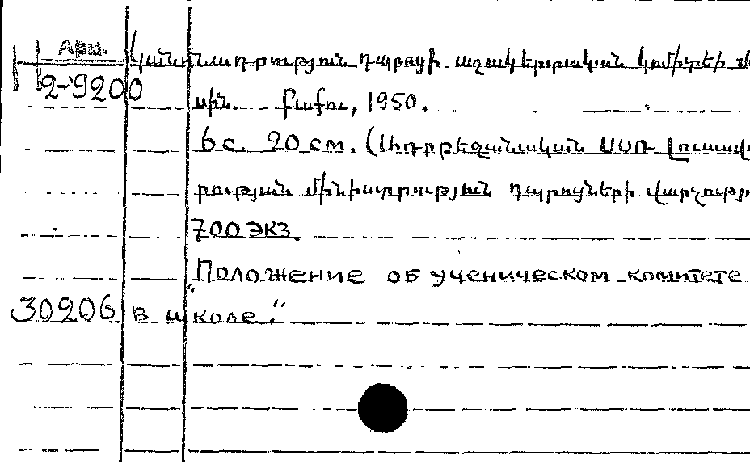 Арм.
2-9200
Կանոնադրություն դպրոցի աշակերտական կոմիտեի
սին. Բաքու, 1950.
6 с. 20 см. (Ադրբեջանական ՍՍՌ Լուսավո
րության մինիստրություն դպրոցների վարչությ
700 экз.
"Положение об ученическом комитете
30206 в школе."